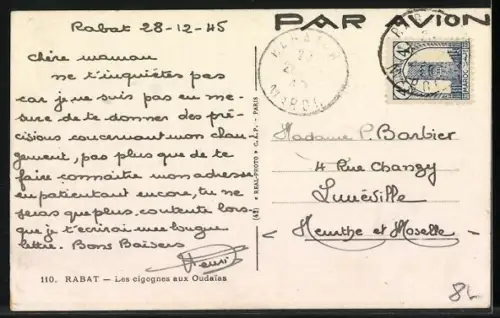 Rabat 28-12-45
PAR AVION
Chère maman
ne t'inquiètes pas
car je ne suis pas en me-
sure de te donner des pré-
cisions concernant mon chan-
gement, pas plus que de te
faire connaître mon adresse
en patientant encore, tu ne
seras que plus contente lors-
que je t'écrirai une longue
lettre. Bons Baisers
Henri
110. RABAT — Les cigognes aux Oudaïas
"REAL-PHOTO" C.A.P. - PARIS
MAROC
Madame P. Barbier
4 Rue Changy
Lunéville
Meurthe et Moselle